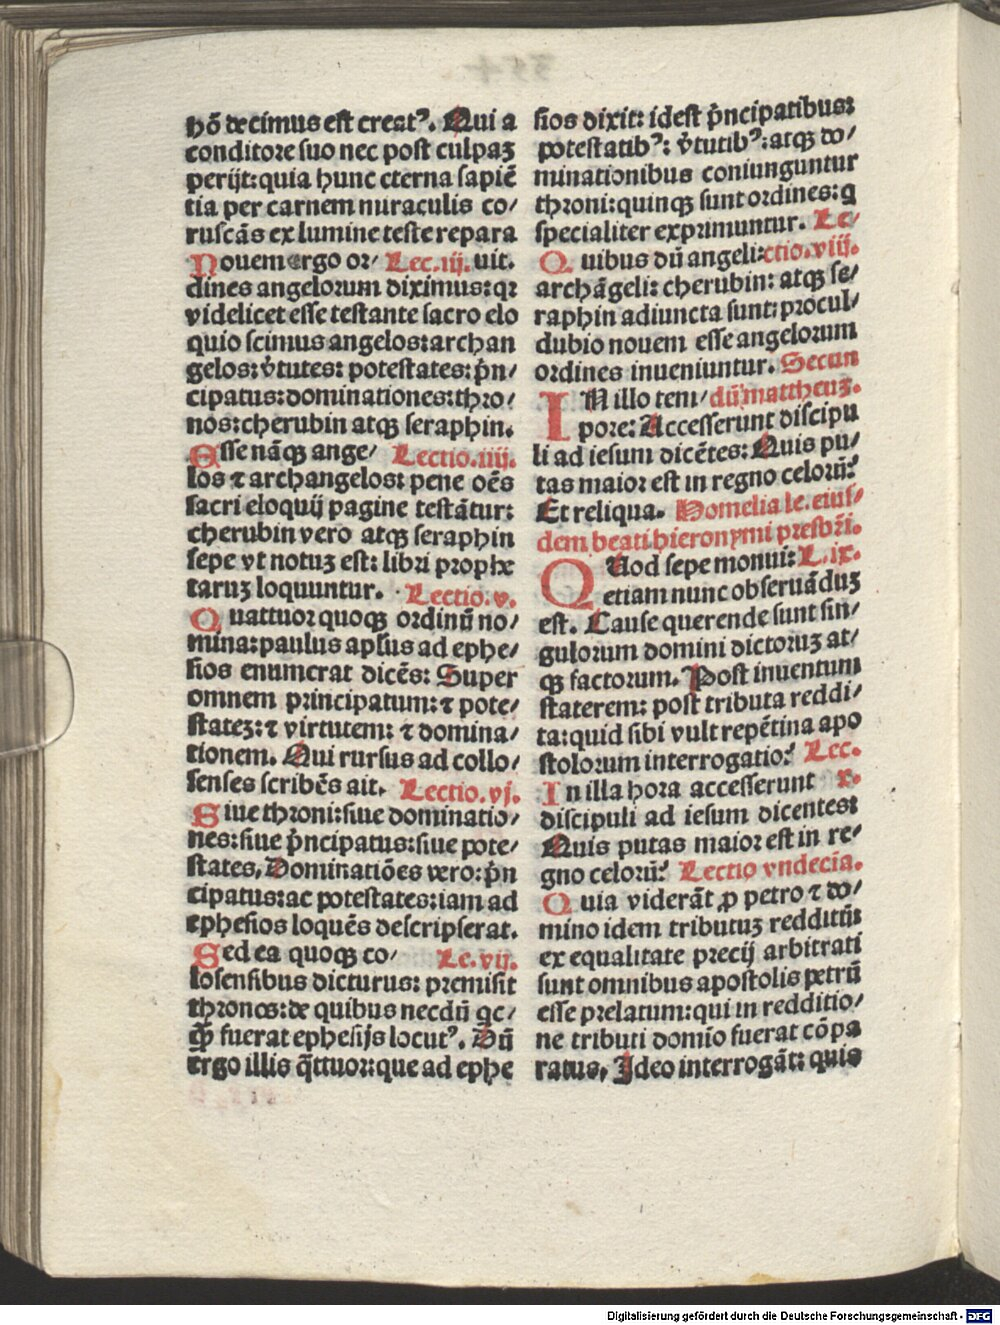 hō decimus est creatꝰ. Qui a
conditore suo nec post culpaꝫ
perijt: quia hunc eterna sapiē
tia per carnem miraculis co/
ruscās ex lumine teste repara
Nouem ergo or/ Lec.iij. uit.
dines angelorum diximus: qꝛ
videlicet esse testante sacro elo
quio scimus angelos: archan
gelos: v̄tutes: potestates: p̄n/
cipatus: dominationes: thro/
nos: cherubin atqꝫ seraphin.
Esse nāqꝫ ange/ Lectio.iiij.
los ⁊ archangelos: pene oēs
sacri eloquij pagine testātur:
cherubin vero atqꝫ seraphin
sepe vt notuꝫ est: libri prophe
taruꝫ loquuntur. Lectio.v.
Quattuor quoqꝫ ordinū no/
mina: paulus apłus ad ephe/
sios enumerat dicēs: Super
omnem principatum: ⁊ pote/
stateꝫ: ⁊ virtutem: ⁊ domina/
tionem. Qui rursus ad collo/
senses scribēs ait. Lectio.vj.
Siue throni: siue dominatio/
nes: siue p̄ncipatus: siue pote/
states. Dominatiōes vero: p̄n
cipatus: ac potestates: iam ad
ephesios loquēs descripserat.
Sed ea quoqꝫ co/ Le.vij.
losensibus dicturus: premisit
thronos: de quibus necdū qc/
qꝫ̄ fuerat ephesijs locutꝰ. Dū
ergo illis q̄ttuor: que ad ephe
sios dixit: idest p̄ncipatibus:
potestatibꝰ: v̄tutibꝰ: atqꝫ do/
minationibus coniunguntur
throni: quinqꝫ sunt ordines: q
specialiter exprimuntur. Le-
Quibus dū angeli: ctio.viij.
archāgeli: cherubin: atqꝫ se/
raphin adiuncta sunt: procul/
dubio nouem esse angelorum
ordines inueniuntur. Secun
IN illo tem/ dū mattheuꝫ.
pore: Accesserunt discipu
li ad iesum dicētes: Quis pu/
tas maior est in regno celorū?
Et reliqua. Homelia le. eius/
dem beati hieronymi presbr̄i.
QUod sepe monui: L.ix.
etiam nunc obseruāduꝫ
est. Cause querende sunt sin/
gulorum domini dictoruꝫ at/
qꝫ factorum. Post inuentum
staterem: post tributa reddi/
ta: quid sibi vult repētina apo
stolorum interrogatio? Lec.
In illa hora accesserunt x.
discipuli ad iesum dicentes:
Quis putas maior est in re/
gno celorū? Lectio vndecia.
Quia viderāt ꝓ petro ⁊ do/
mino idem tributuꝫ redditū:
ex equalitate precij arbitrati
sunt omnibus apostolis petrū
esse prelatum: qui in redditio/
ne tributi domīo fuerat cōpa
ratus. Ideo interrogāt: quis
Digitalisierung gefördert durch die Deutsche Forschungsgemeinschaft - DFG